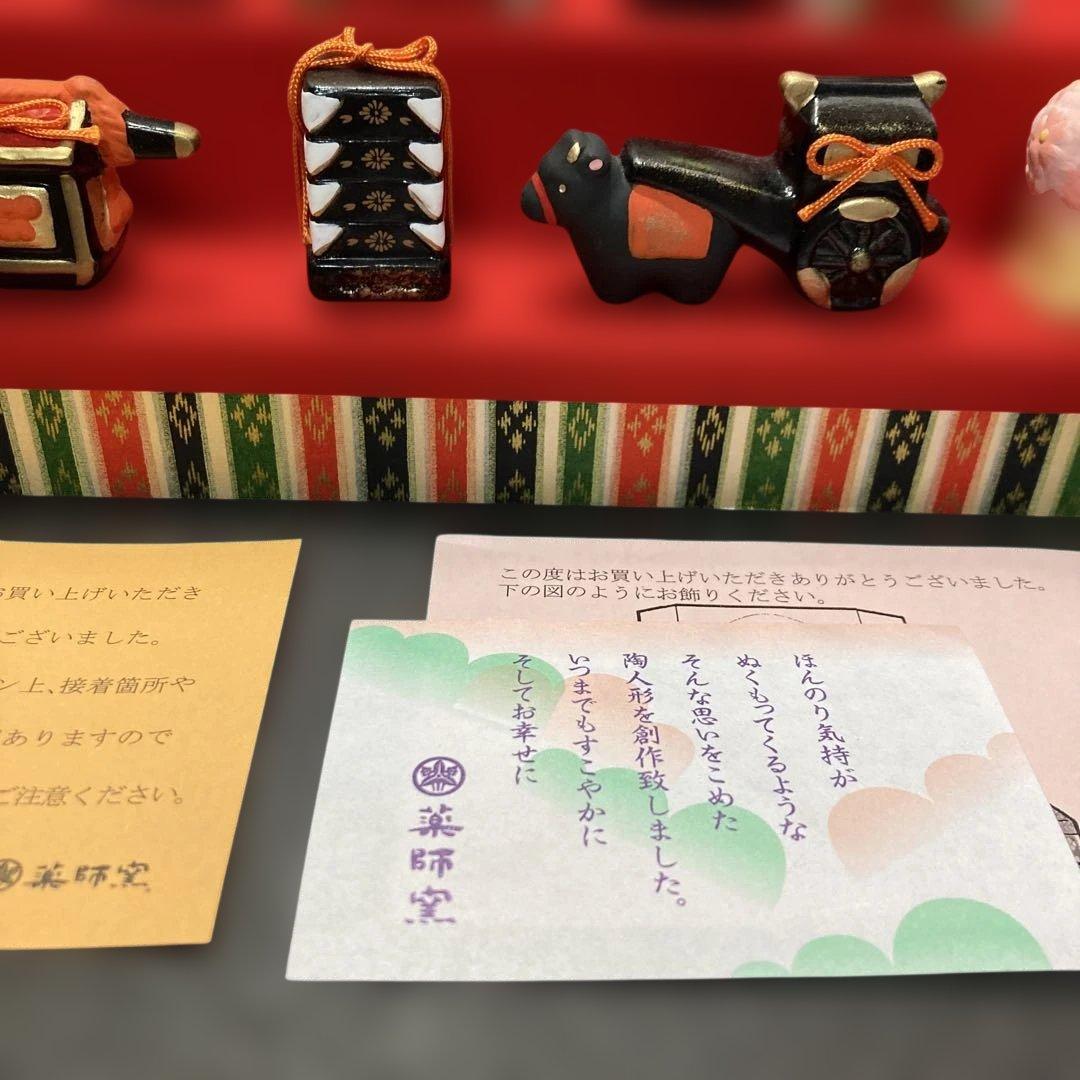 お買い上げいただき
ございました。
ン上、接着箇所や
ありますので
ご注意ください。
薬師窯
この度はお買い上げいただきありがとうございました。
下の図のようにお飾りください。
ほんのり気持が
ぬくもってくるような
そんな思いをこめた
陶人形を創作致しました。
いつまでもすこやかに
そしてお幸せに
薬師窯